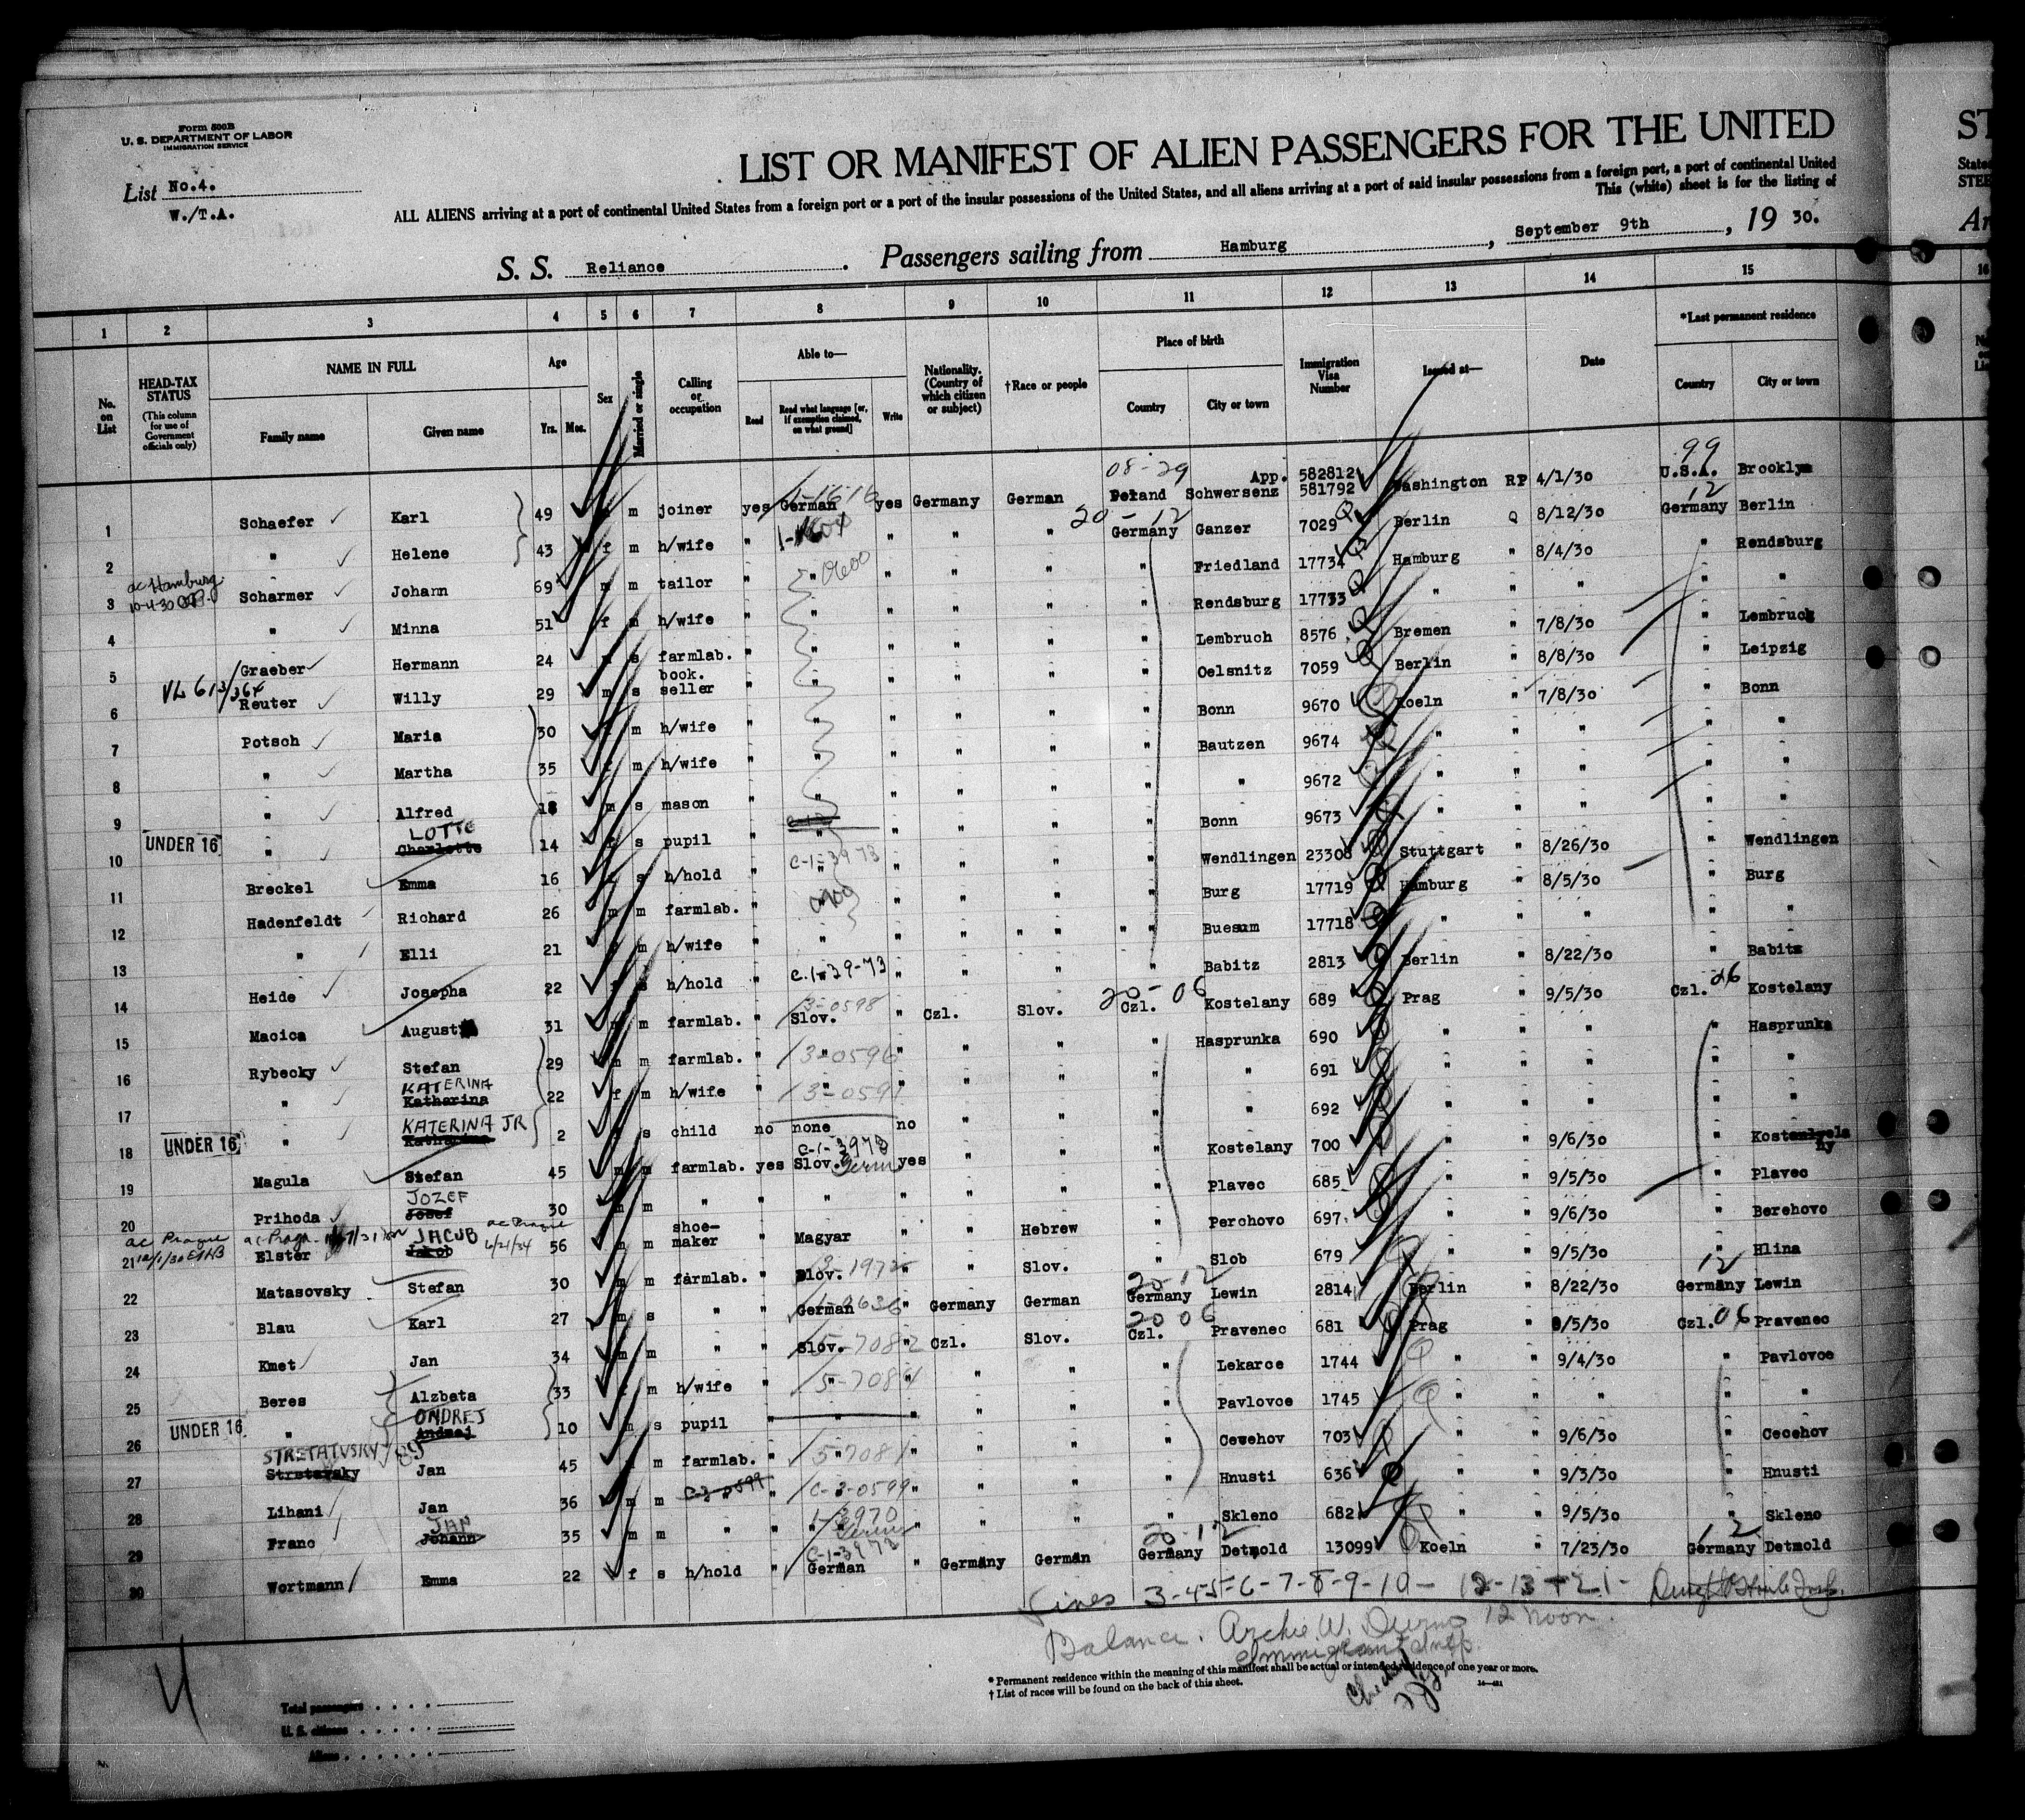 Form 500B
U. S. DEPARTMENT OF LABOR
IMMIGRATION SERVICE
List No.4.
W./T.A.
LIST OR MANIFEST OF ALIEN PASSENGERS FOR THE UNITED
ALL ALIENS arriving at a port of continental United States from a foreign port or a port of the insular possessions of the United States, and all aliens arriving at a port of said insular possessions from a foreign port, a port of continental United
This (white) sheet is for the listing of
S. S. Reliance. Passengers sailing from Hamburg, September 9th, 19 30.
1 2 3 4 5 6 7 8 9 10 11 12 13 14 15
No. on List
HEAD-TAX STATUS (This column for use of Government officials only)
NAME IN FULL Family name Given name
Age Yrs. Mos.
Sex
Married or single
Calling or occupation
Able to— Read Read what language [or, if exemption claimed, on what ground] Write
Nationality. (Country of which citizen or subject)
†Race or people
Place of birth Country City or town
Immigration Visa Number
Issued at—
Date
*Last permanent residence Country City or town
08-29 App. 582812 99
1 Schaefer Karl 49 m m joiner yes German 1-1616 yes Germany German Poland Schwersenz 581792 Washington RP 4/1/30 U.S.A. Brooklyn
20-12 12
2 " Helene 43 f m h/wife " " " " " Germany Ganzer 7029 Berlin Q 8/12/30 Germany Berlin
ac Hamburg
10-4-30
3 Scharmer Johann 69 m m tailor " " 0600 " " " " Friedland 17734 Hamburg " 8/4/30 " Rendsburg
4 " Minna 51 f m h/wife " " " " " " Rendsburg 17733 " " " " "
5 Graeber Hermann 24 m s farmlab. " " " " " " Lembruch 8576 Bremen " 7/8/30 " Lembruch
VL 613/364
6 Reuter Willy 29 m s book. seller " " " " " " Oelsnitz 7059 Berlin " 8/8/30 " Leipzig
7 Potsch Maria 30 f m h/wife " " " " " " Bonn 9670 Koeln " 7/8/30 " Bonn
8 " Martha 35 f m h/wife " " " " " " Bautzen 9674 " " " " "
9 " Alfred 18 m s mason " " " " " " " 9672 " " " " "
LOTTE
UNDER 16
10 " Charlotte 14 f s pupil " " " " " " Bonn 9673 " " " " "
11 Breckel Emma 16 f s h/hold " C-1-3973 " " " " " Wendlingen 23308 Stuttgart " 8/26/30 " Wendlingen
12 Hadenfeldt Richard 26 m m farmlab. " " " " " " Burg 17719 Hamburg " 8/5/30 " Burg
13 " Elli 21 f m h/wife " " " " " " Buesum 17718 " " " " "
14 Heide Josepha 22 f s h/hold " C-1-39-73 " " " " Babitz 2813 Berlin " 8/22/30 " Babitz
20-06
15 Macica August 31 m m farmlab. " Slov. 3-0598 " Czl. Slov. Czl. Kostelany 689 Prag " 9/5/30 Czl. Kostelany
16 Rybecky Stefan 29 m m farmlab. " " 3-0596 " " " " Hasprunka 690 " " " " Hasprunka
KATERINA
17 " Katharina 22 f m h/wife " " 3-0591 " " " " " 691 " " " " "
KATERINA JR
UNDER 16
18 " Katharina 2 f s child no none no " " " " 692 " " " " "
C-1-3973
19 Magula Stefan 45 m m farmlab. yes Slov. yes " " " Kostelany 700 " " 9/6/30 " Kostelany
JOZEF
20 Prihoda Josef 30 m m " " " " " " " Plavec 685 " " 9/5/30 " Plavec
ac Prague
JACUB
21 Elster Jakob 56 m m shoe-maker " Magyar " " Hebrew " Perchovo 697 " " 9/6/30 " Berehovo
22 Matasovsky Stefan 30 m m farmlab. " Slov. " " Slov. " Slob 679 " " 9/5/30 " Hlina
20-12 12
23 Blau Karl 27 m s " " German " Germany German Germany Lewin 2814 Berlin " 8/22/30 Germany Lewin
20 06 06
24 Kmet Jan 34 m m " " Slov. 5-7082 " Czl. Slov. Czl. Pravenec 681 Prag " 9/5/30 Czl. Pravenec
25 Beres Alzbeta 33 f m h/wife " " 5-7084 " " " " Lekarce 1744 " " 9/4/30 " Pavlovce
ONDREJ
UNDER 16
26 " Andrej 10 m s pupil " " " " " " Pavlovce 1745 " " " " "
STRETAVSKY
27 Stretavsky Jan 45 m m farmlab. " " 5-7081 " " " " Cecehov 703 " " 9/6/30 " Cecehov
28 Lihani Jan 36 m m C-3-0599 " " C-3-0599 " " " " Hnusti 636 " " 9/3/30 " Hnusti
JAN
29 Franc Johann 35 m m " " " 1-3970 " " " " Skleno 682 " " 9/5/30 " Skleno
C-1-3972 20-12 12
30 Wortmann Emma 22 f s h/hold " German " Germany German Germany Detmold 13099 Koeln " 7/23/30 Germany Detmold
Lines 3-4-5-6-7-8-9-10-12-13+21-
Balance. Archie W. 12 noon.
Immigrant Insp.
* Permanent residence within the meaning of this manifest shall be actual or intended residence of one year or more.
† List of races will be found on the back of this sheet.
14—491
4
Total passengers
U. S. citizens
Aliens